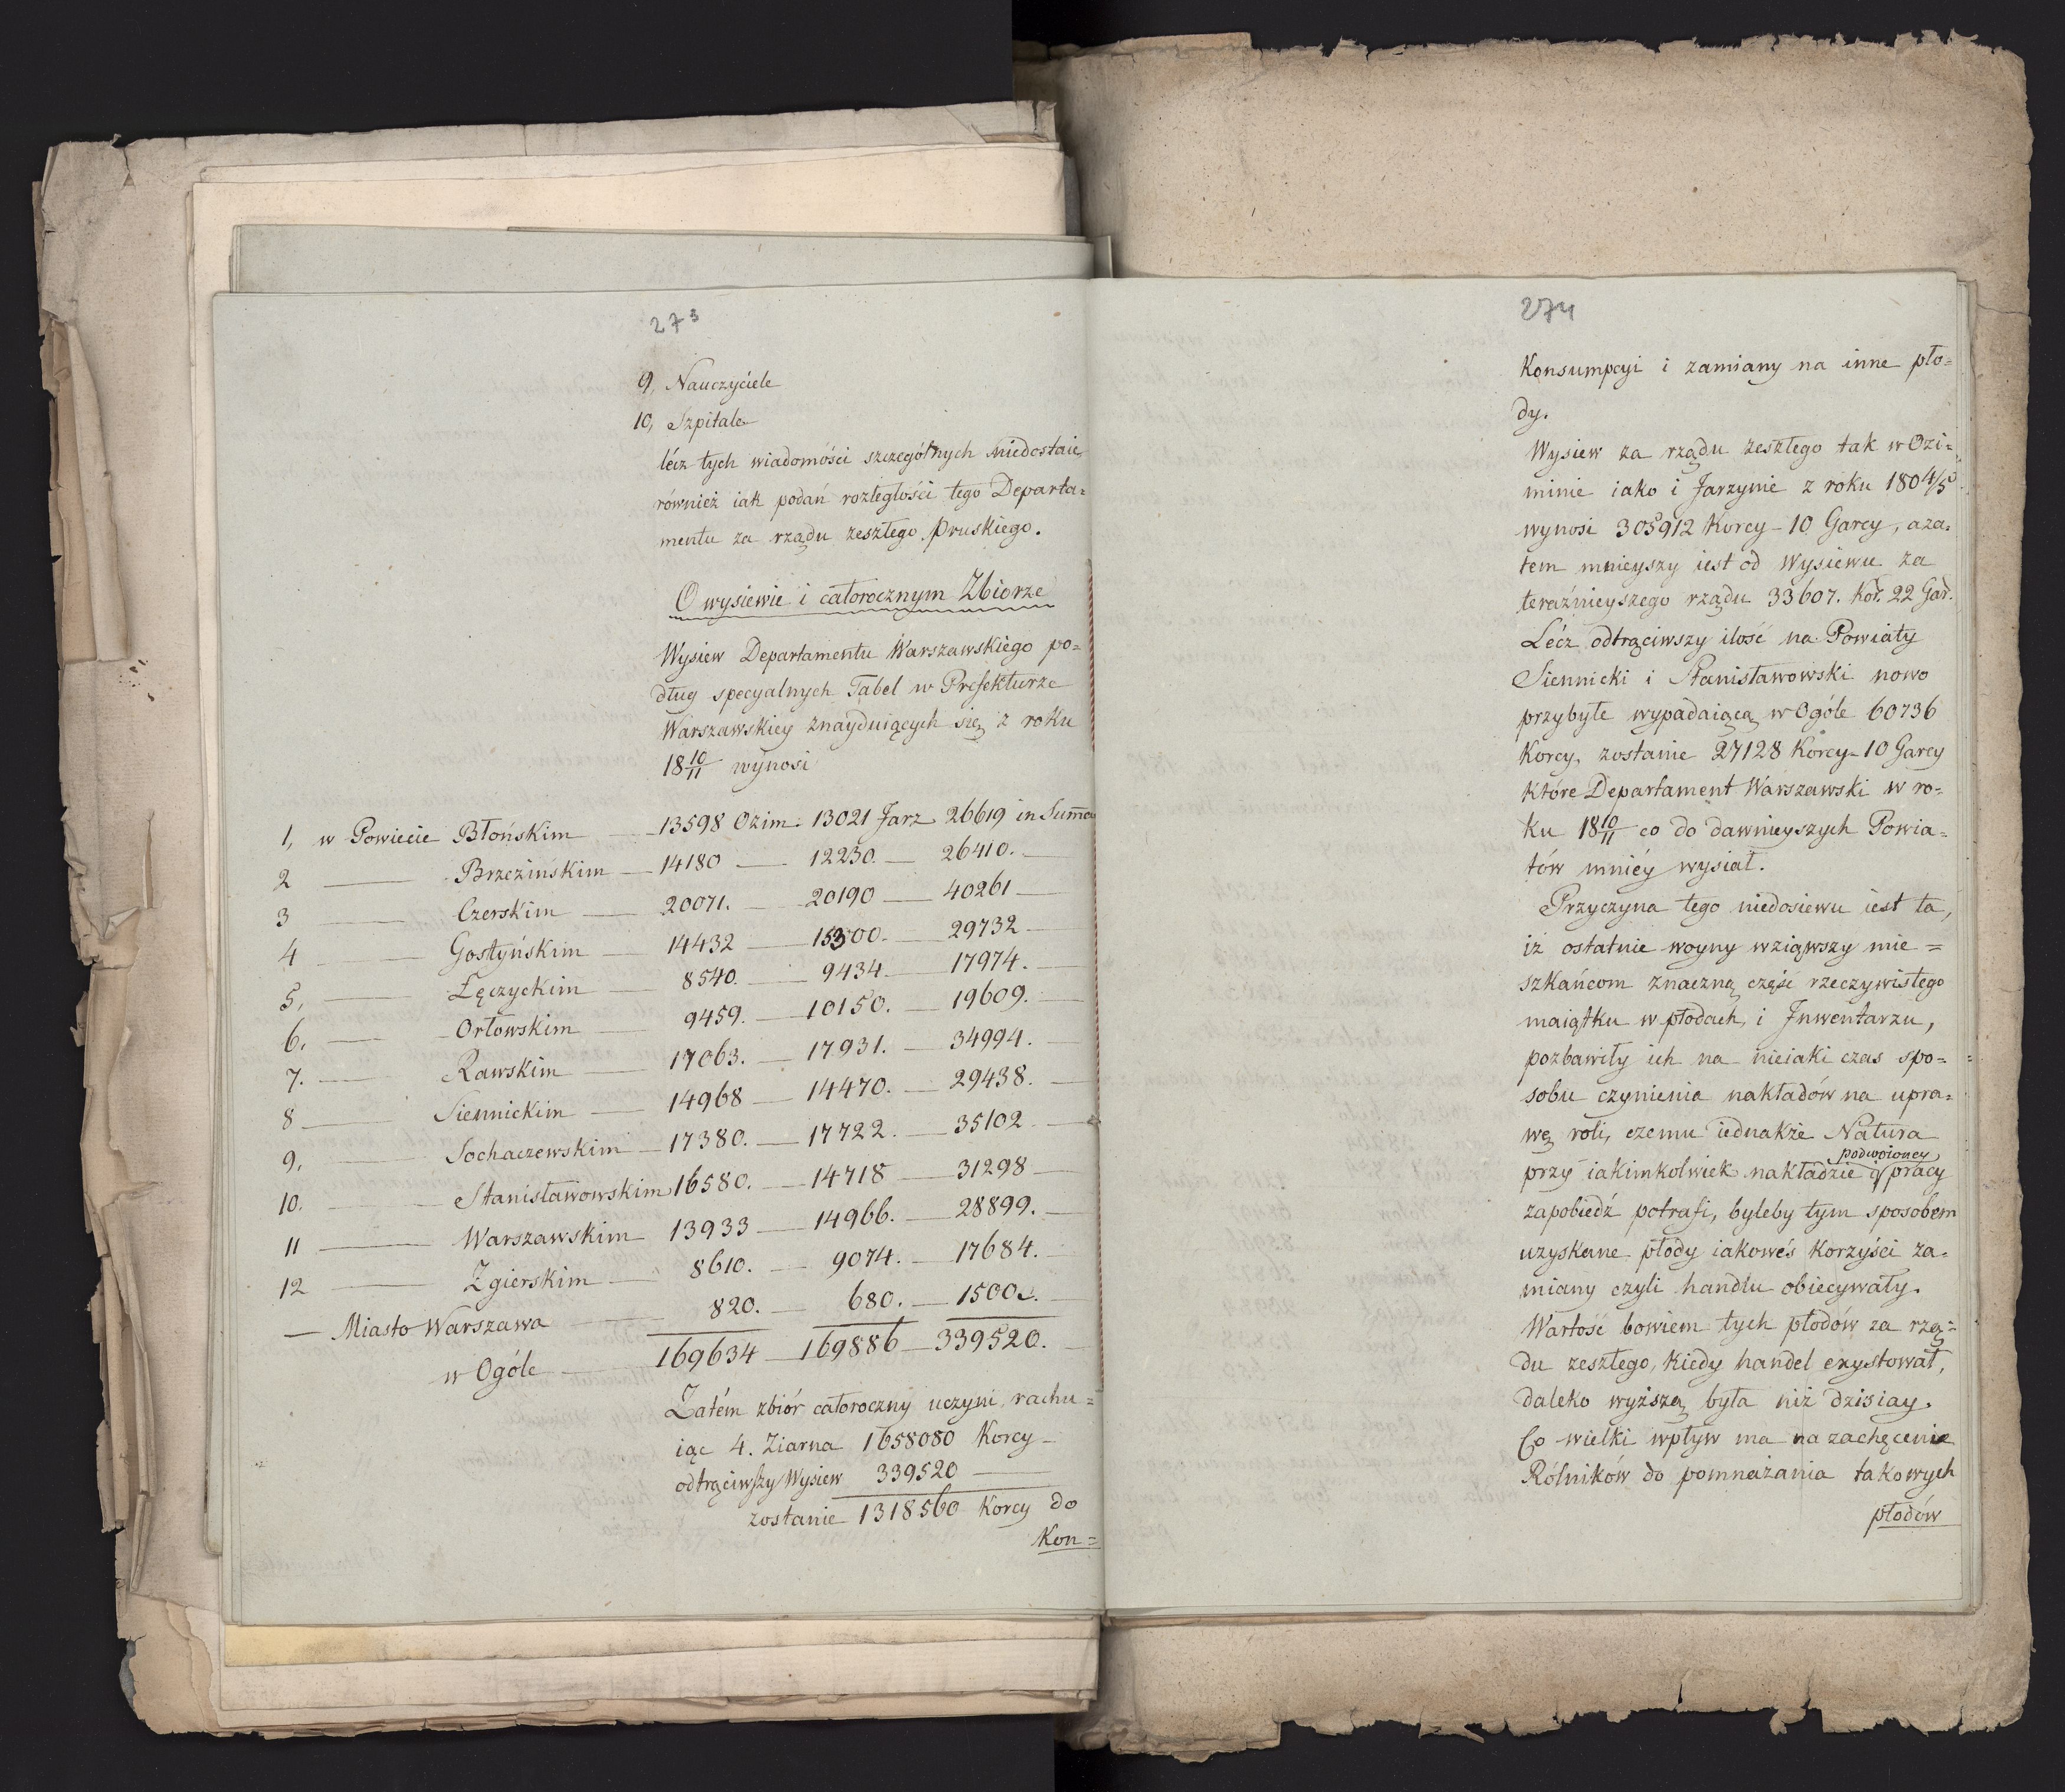 273
9, Nauczyciele
10, Szpitale
lécz tych wiadomości szczegółnych niedostaie,
również iak podań rozległości tego Departa=
mentu za rządu zeszłego Pruskiego.
O wysiewie i całorocznym Zbiorze
Wysiew Departamentu Warszawskiego po=
dług specyalnych Tabel w Prefekturze
Warszawskiey znayduiących się z roku
18 10/11 wynosi
1, w Powiecie Błońskim — 13598 Ozim: 13021 Jarz. 26619 in Summa
2 — Brzezińskim — 14180 — 12230. — 26410. —
3 — Czerskim — 20071. — 20190 — 40261 —
4 — Gostyńskim — 14432 — 15300. — 29732 —
5, — Łęczyckim — 8540. — 9434. — 17974. —
6. — Orłowskim — 9459. — 10150. — 19609. —
7. — Rawskim — 17063. — 17931. — 34994. —
8 — Siennickim — 14968 — 14470. — 29438. —
9, — Sochaczewskim — 17380. — 17722. — 35102 —
10. — Stanisławowskim 16580. — 14718 — 31298 —
11 — Warszawskim — 13933 — 14966. — 28899. —
12 — Zgierskim — 8610. — 9074. — 17684. —
— Miasto Warszawa — 820. — 680. — 1500. —
w Ogóle — 169634 — 169886 — 339520. —
Zatém zbiór całoroczny uczyni, rachu=
iąc 4. Ziarna 1658080 Korcy —
odtrąciwszy Wysiew 339520 —
zostanie 1318560 Korcy do
Kon=
274
Konsumpcyi i zamiany na inne pło=
dy.
Wysiew za rządu zeszłego tak w Ozi=
minie iako i Jarzynie z roku 1804/5
wynosi 305912 Korcy – 10 Garcy, aza=
tem mnieyszy iest od Wysiewu za
teraźnieyszego rządu 33607. Kor. 22 Gar.
Lécz odtrąciwszy ilość na Powiaty
Siennicki i Stanisławowski nowo
przybyłe wypadaiącą w Ogóle 60736
Korcy, zostanie 27128 Korcy – 10 Garcy
które Departament Warszawski w ro=
ku 18 10/11 co do dawnieyszych Powia=
tów mniéy wysiał.
Przyczyna tego niedosiewu iest ta,
iż ostatnie woyny wziąwszy mie=
szkańcom znaczną część rzeczywistego
maiątku w płodach, i Jnwentarzu,
pozbawiły ich na nieiaki czas spo=
sobu czynienia nakładów na upra=
wę roli, czemu iednakże Natura
podwoioney
przy iakimkolwiek nakładzie i pracy
zapobiedź potrafi, byleby tym sposobem
uzyskane płody iakoweś korzyści za=
miany czyli handlu obiecywały.
Wartość bowiem tych płodów za rzą=
du zeszłego, kiedy handel exystował,
daleko wyższą była niż dzisiay.
Co wielki wpływ ma na zachęcenie
Rólników do pomnażania takowych
płodów